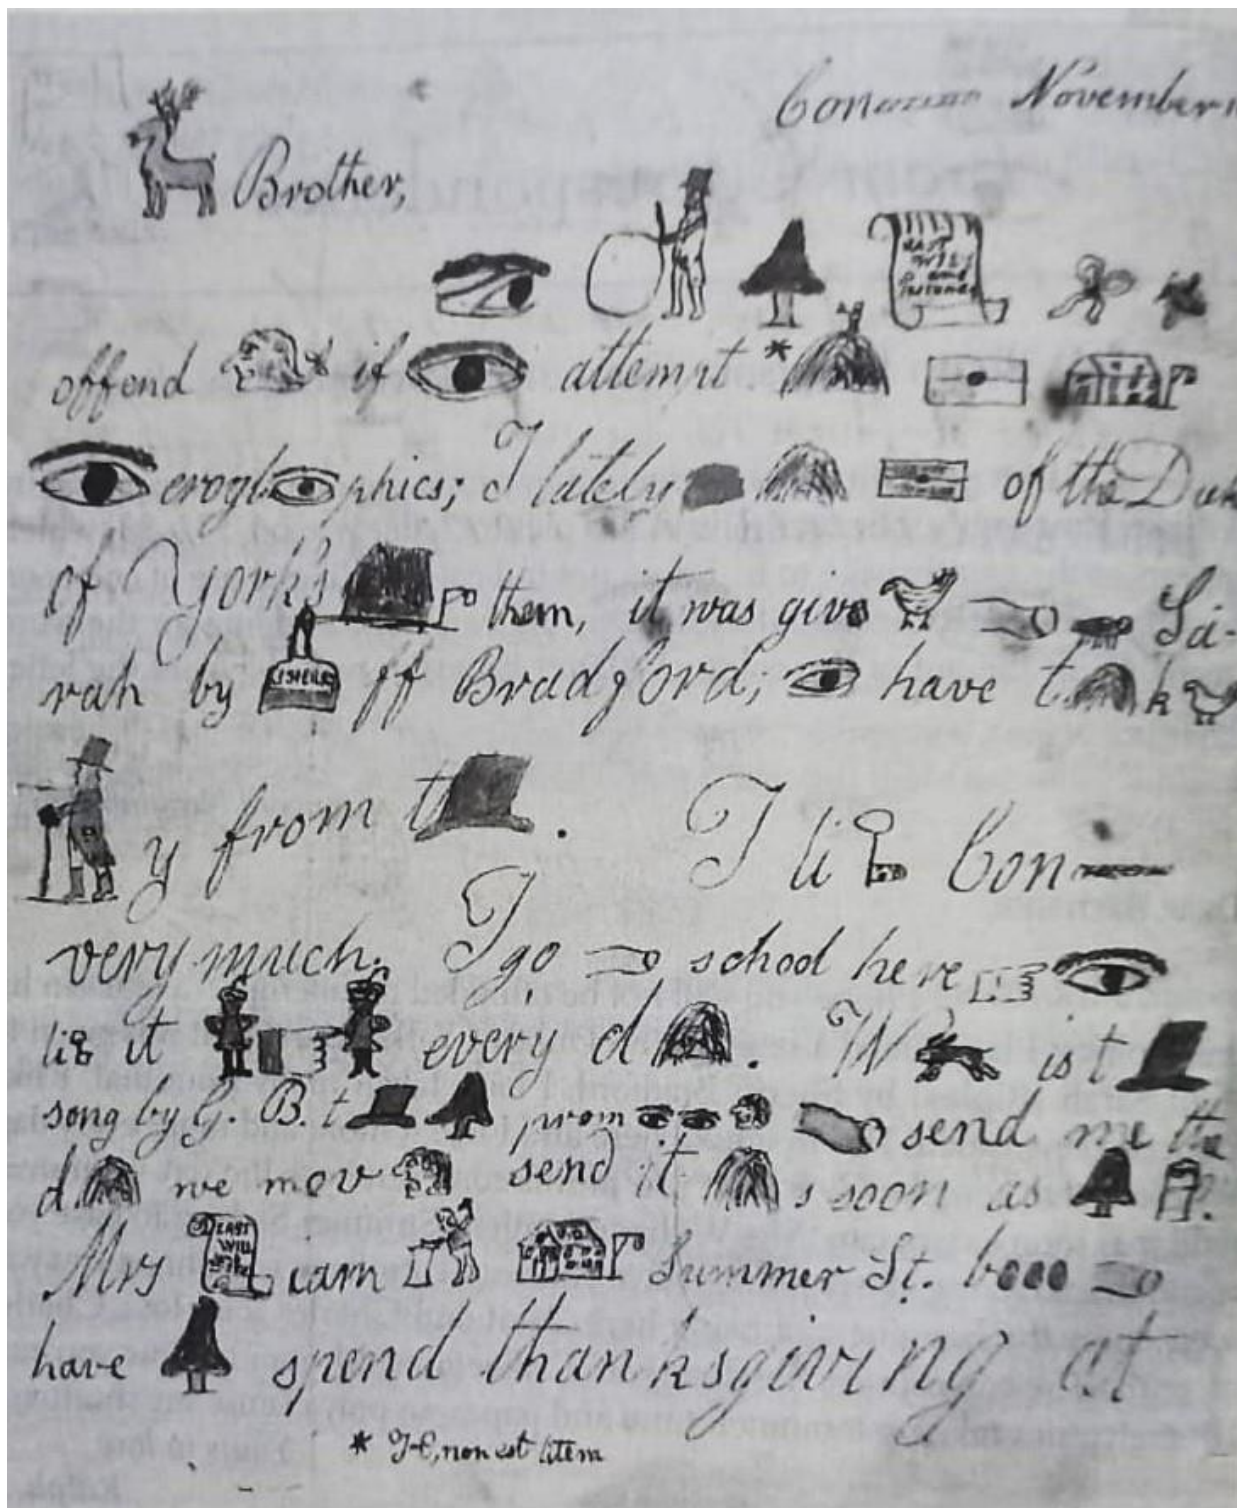 Con November
Brother,
Last Will and
offend if attempt *
erogl phics; I lately of the Duk
of York's them, it was give Sa-
rah by ff Bradford; have t k
y from t .
I li Con
very much. I go school here
li it every d . W is t
song by G. B. t prom send me the
d we mov send it s soon as ?
Mrs LAST WILL iam Summer St. b
have spend thanksgiving at
* non est